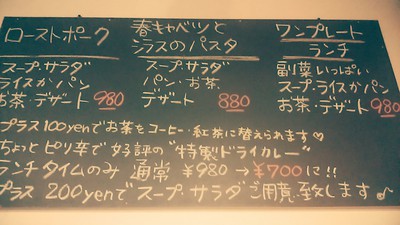 ローストポーク
スープ・サラダ
ライスかパン
お茶・デザート 980
春キャベツと
シラスのパスタ
スープ・サラダ
パン・お茶
デザート 880
ワンプレート
ランチ
副菜いっぱい
スープ・ライスかパン
お茶・デザート 980
プラス100yenでお茶をコーヒー・紅茶に替えられます♡
ちょっとピリ辛で好評の"特製ドライカレー"
ランチタイムのみ 通常 ¥980→¥700に!!
プラス 200yenでスープ・サラダご用意致します♪